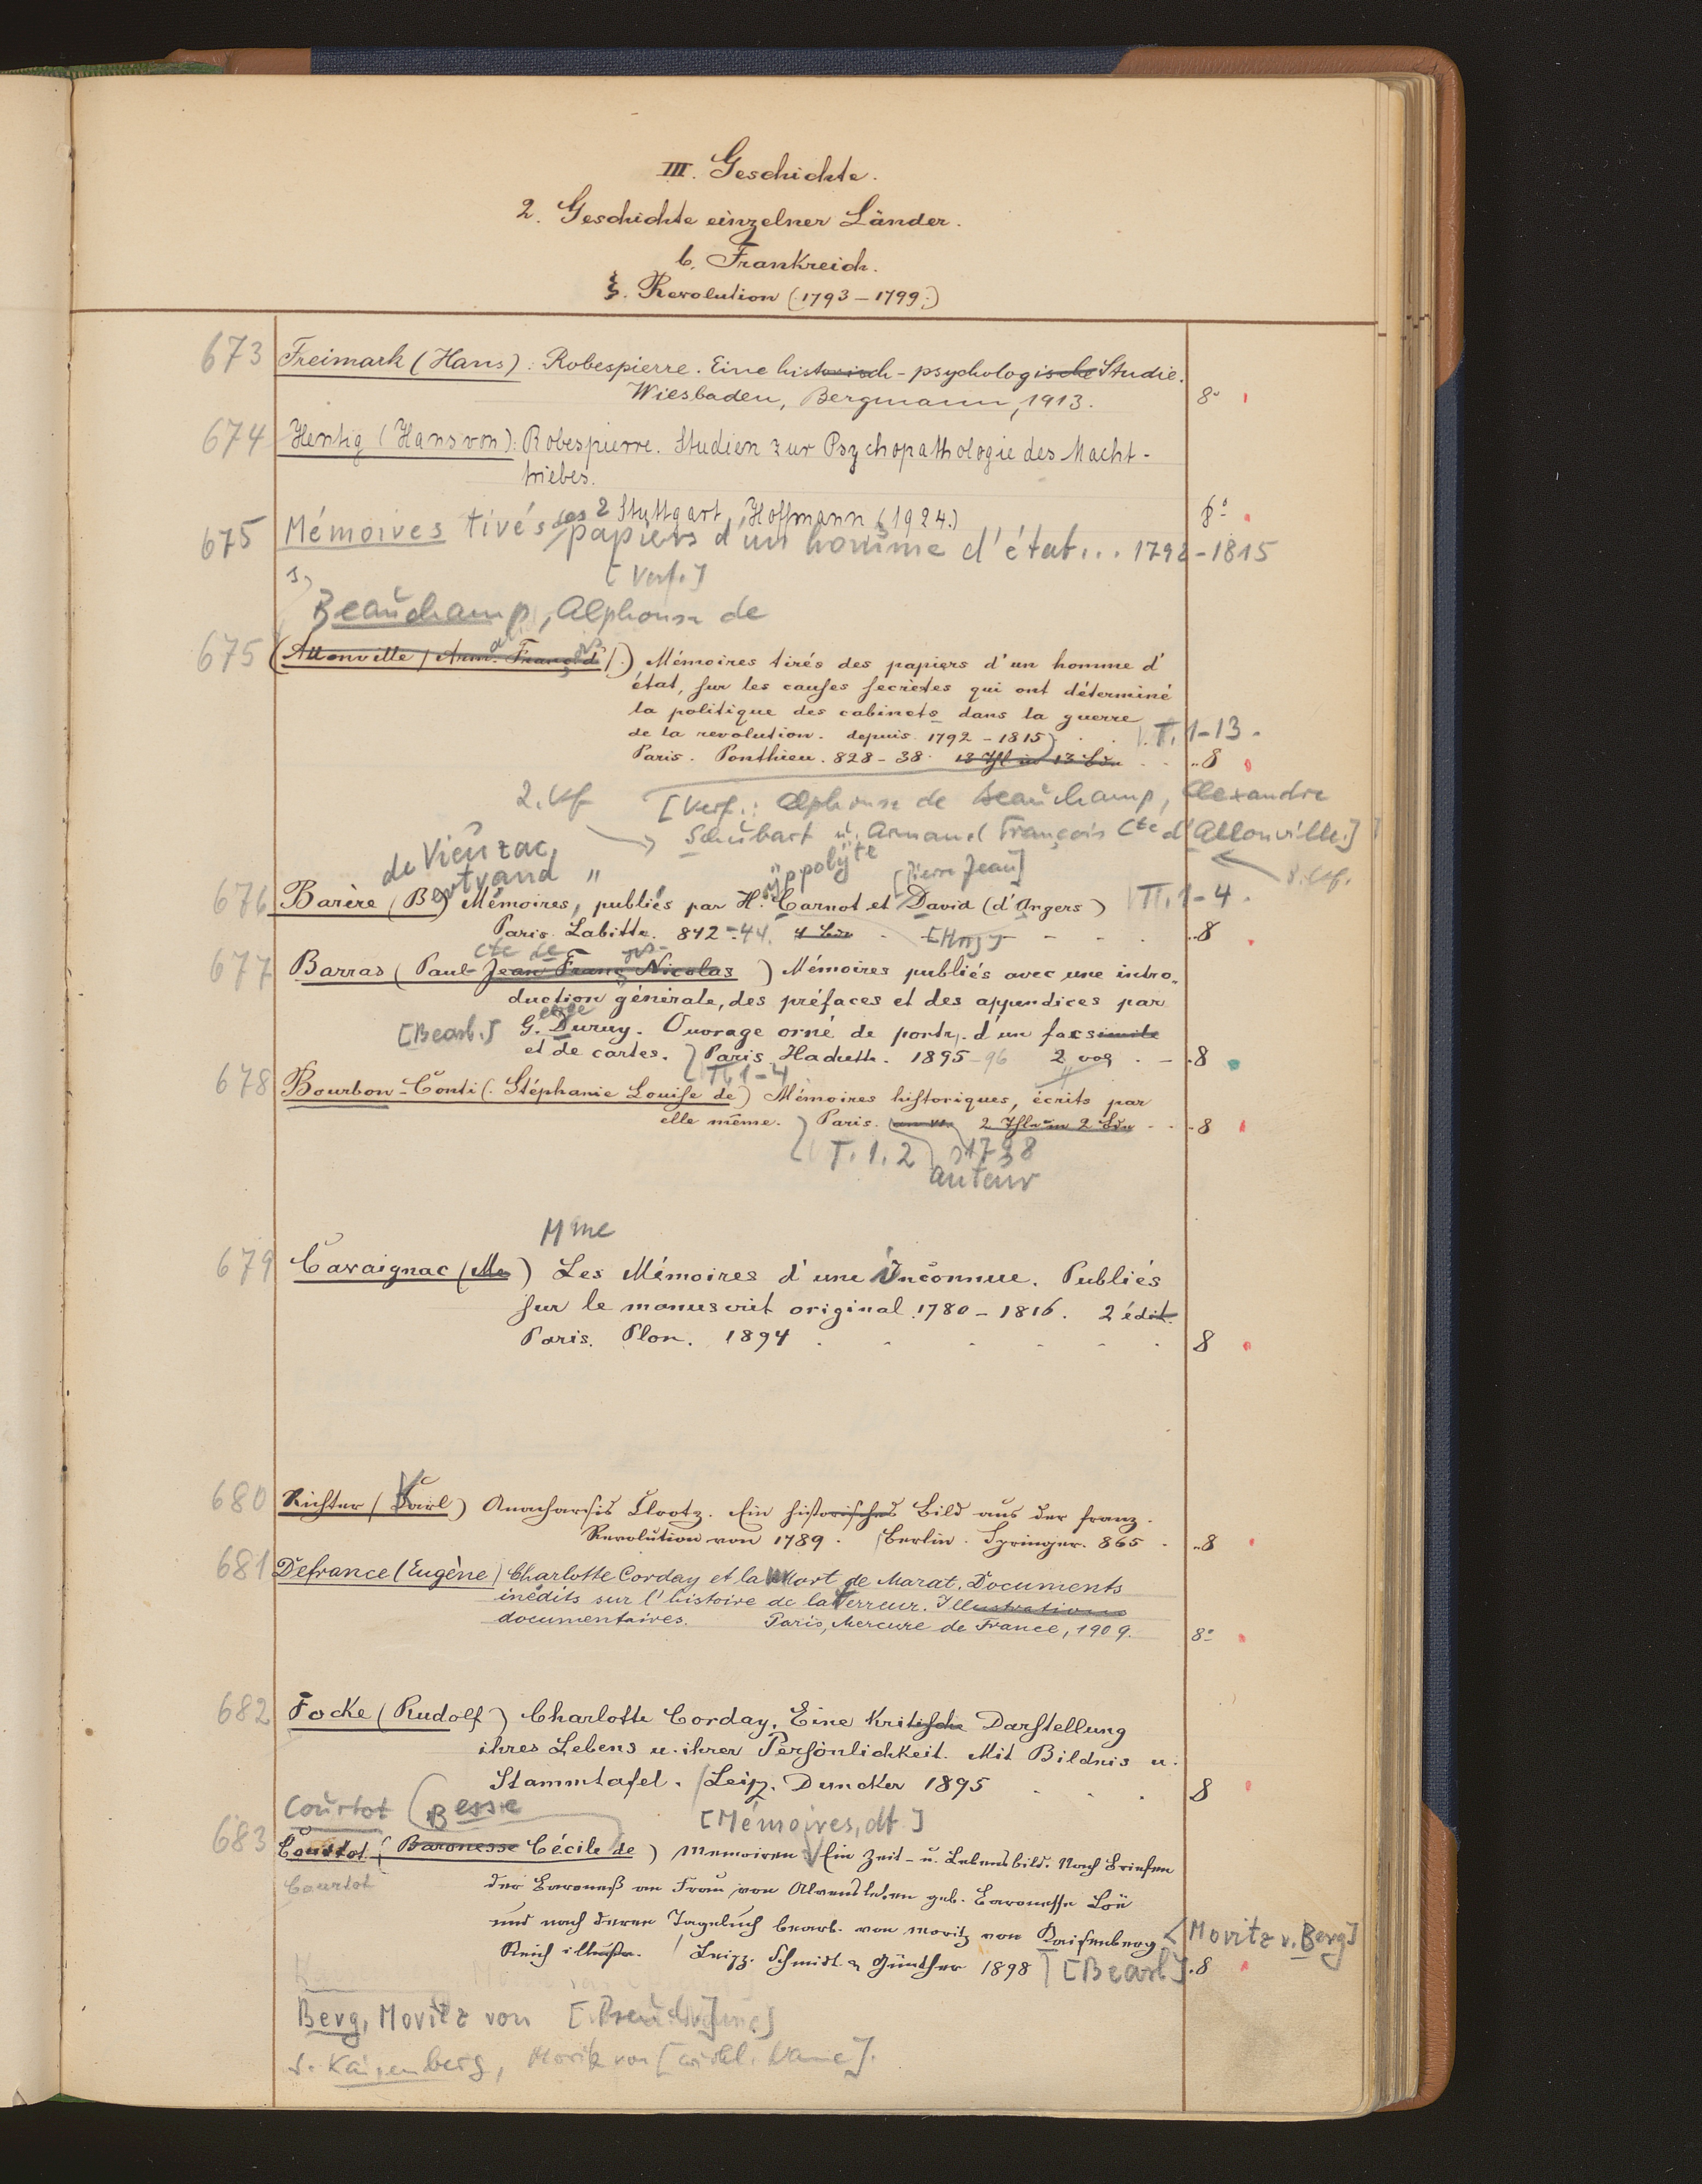 III. Geschichte.
2. Geschichte einzelner Länder.
b. Frankreich.
ξ. Revolution (1793–1799.)
673 Freimark (Hans): Robespierre. Eine historisch-psychologische Studie.
Wiesbaden, Bergmann, 1913. 8°
674 Hentig (Hans von): Robespierre. Studien zur Psychopathologie des Macht-
triebes.
2 Stuttgart, Hoffmann (1924.) 8°
675 Mémoires tirés des papiers d'un homme d'état... 1792-1815
[Verf.]
Beauchamp, Alphonse de
675 (Allonville (Arm. Franç. d').) Mémoires tirés des papiers d'un homme d'
état, sur les causes secrètes qui ont déterminé
la politique des cabinets dans la guerre
de la revolution. depuis 1792-1815 T. 1-13.
Paris. Ponthieu. 828-38. 13 Thl in 13 Bdn ..8
2. Vf. [Verf.: Alphonse de Beauchamp, Alexandre
Schubart u. Armand François Cte d'Allonville.]
de Vieuzac, Bertrand " yppolyte [Pierre Jean] 3. Vf.
676 Barère (B.) Mémoires, publiés par H. Carnot et David (d'Angers) T. 1-4.
Paris. Labitte. 842-44. 4 Bde [Hrsg] ..8
Cte de
677 Barras (Paul Jean Franç Nicolas) Mémoires publiés avec une intro-
duction générale, des préfaces et des appendices par
[Bearb.] G. Duruy. Ouvrage orné de portr. d'un facsimile
et de cartes. Paris Hachette. 1895-96 2 vol .8
T. 1-4
678 Bourbon-Conti (Stéphanie Louise de) Mémoires historiques, écrits par
elle même. Paris. an VI. 2 Thle in 2 Bdn ..8
T. 1.2
auteur
Mme
679 Cavaignac (Me) Les Mémoires d'une Inconnue. Publiés
sur le manuscrit original 1780-1816. 2 édit.
Paris. Plon. 1894 8
680 Richter (Karl) Anacharsis Clootz. Ein historisches Bild aus der franz.
Revolution von 1789. Berlin. Springer. 865. ..8
681 Defrance (Eugène) Charlotte Corday et la Mort de Marat. Documents
inédits sur l'histoire de la Terreur. Illustrations
documentaires. Paris, Mercure de France, 1909. 8°
682 Focke (Rudolf) Charlotte Corday. Eine kritische Darstellung
ihres Lebens u. ihrer Persönlichkeit. Mit Bildnis u.
Stammtafel. Leipz. Duncker 1895 8
Courtot (Besse [Mémoires, dt.]
683 Courtot (Baronesse Cécile de) Memoiren. Ein Zeit- u. Lebensbild. Nach Briefen
Courtot der Baroneß an Frau von Alvensleben geb. Baronesse Loë
und nach deren Tagebuch bearb. von Moritz von Kaisenberg < Moritz v. Berg]
Reich illustr. Leipz. Schmidt & Günther 1898 [Bearb.] .8
Berg, Moritz von [Pseud.]
s. Kaisenberg, Moritz von [wirkl. Name].